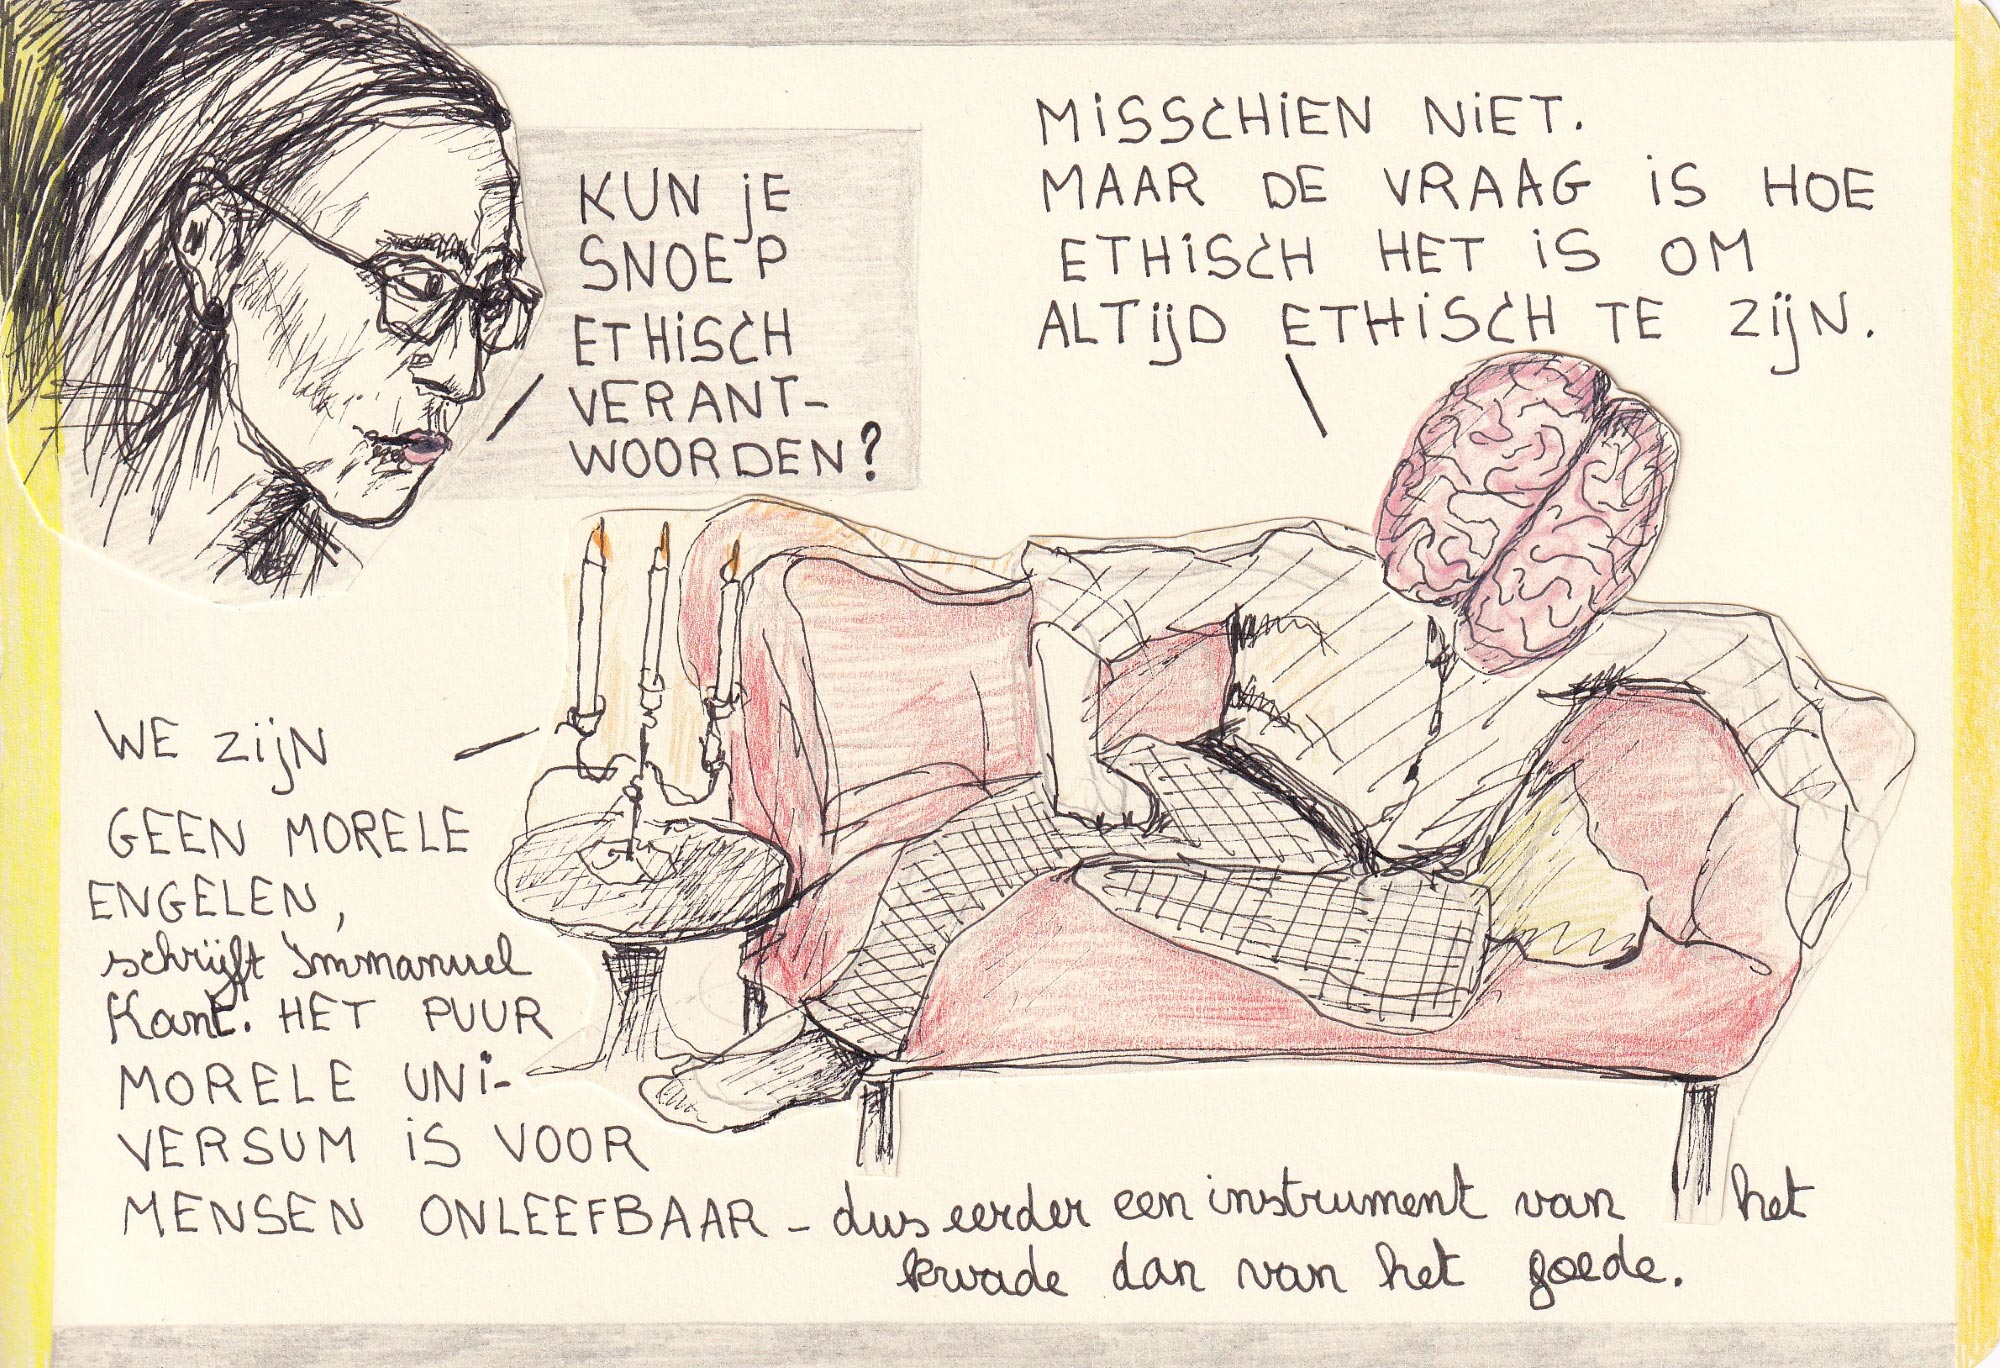 KUN JE
SNOEP
ETHISCH
VERANT-
WOORDEN?
MISSCHIEN NIET.
MAAR DE VRAAG IS HOE
ETHISCH HET IS OM
ALTIJD ETHISCH TE ZIJN.
WE ZIJN
GEEN MORELE
ENGELEN,
schrijft Immanuel
Kant. HET PUUR
MORELE UNI-
VERSUM IS VOOR
MENSEN ONLEEFBAAR – dus eerder een instrument van het
kwade dan van het goede.